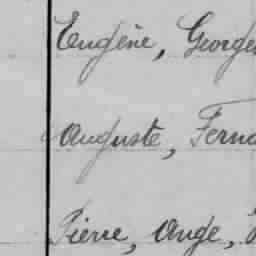 Eugène, Georges
Auguste,
Pierre, Ange,